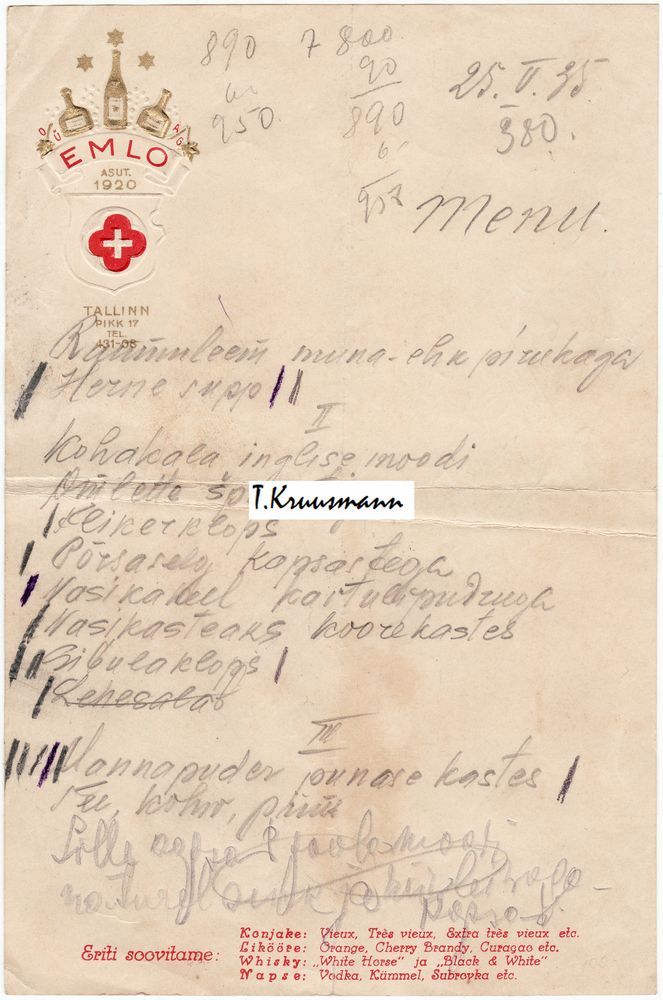 O/Ü A/G
EMLO
ASUT.
1920
TALLINN
PIKK 17
TEL.
431-08
890 7 800
90
25. II. 35
950. 890
380.
957
Menu.
muna- ehk pirukaga
Herne supp
II
Kohakala inglise moodi
T.Kruusmann
Klikerklops
Põrsaselg kapsastega
Vasikakeel kartulipudruga
Vasikasteaks koorekastes
Sibulaklops
Lehesalat
III
Mannapuder punase kastes
Tee, kohv, piim
Eriti soovitame:
Konjake: Vieux, Très vieux, Extra très vieux etc.
Likööre: Orange, Cherry Brandy, Curaçao etc.
Whisky: „White Horse" ja „Black & White"
Napse: Vodka, Kümmel, Subrovka etc.